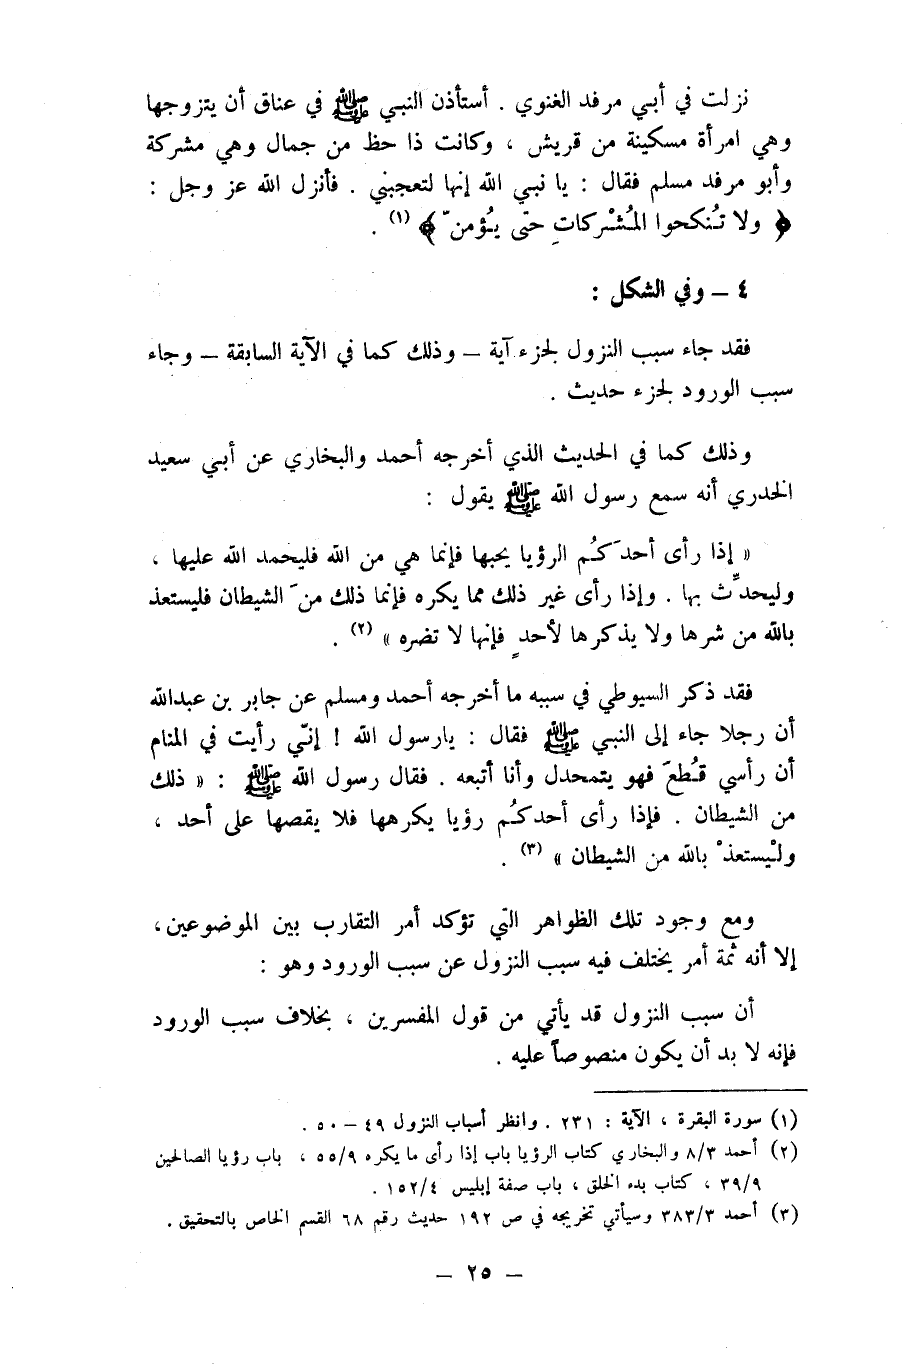 نزلت في أبي مرفد الغنوي . أستأذن النبي ﷺ في عناق أن يتزوجها
وهي امرأة مسكينة من قريش ، وكانت ذا حظ من جمال وهي مشركة
وأبو مرفد مسلم فقال : يا نبي الله إنها لتعجبني . فأنزل الله عز وجل :
﴿ ولا تُنكحوا المُشْركاتِ حتّى يُؤمنّ ﴾ (١) .
٤ – وفي الشكل :
فقد جاء سبب النزول لجزء آية – وذلك كما في الآية السابقة – وجاء
سبب الورود لجزء حديث .
وذلك كما في الحديث الذي أخرجه أحمد والبخاري عن أبي سعيد
الخدري أنه سمع رسول الله ﷺ يقول :
« إذا رأى أحدَكُم الرؤيا يحبها فإنما هي من الله فليحمد الله عليها ،
وليحدِّث بها . وإذا رأى غير ذلك مما يكره فإنما ذلك منَ الشيطان فليستعذ
بالله من شرها ولا يذكرها لأحدٍ فإنها لا تضره » (٢) .
فقد ذكر السيوطي في سببه ما أخرجه أحمد ومسلم عن جابر بن عبدالله
أن رجلا جاء إلى النبي ﷺ فقال : يارسول الله ! إنّي رأيت في المنام
أن رأسي قُطعَ فهو يتمحدل وأنا أتبعه . فقال رسول الله ﷺ : « ذلك
من الشيطان . فإذا رأى أحدكُم رؤيا يكرهها فلا يقصها على أحد ،
ولْيستعذْ بالله من الشيطان » (٣) .
ومع وجود تلك الظواهر التي تؤكد أمر التقارب بين الموضوعين،
إلا أنه ثمة أمر يختلف فيه سبب النزول عن سبب الورود وهو :
أن سبب النزول قد يأتي من قول المفسرين ، بخلاف سبب الورود
فإنه لا بد أن يكون منصوصاً عليه .
(١) سورة البقرة ، الآية : ٢٣١ . وانظر أسباب النزول ٤٩ – ٥٠ .
(٢) أحمد ٨/٣ والبخاري كتاب الرؤيا باب إذا رأى ما يكره ٥٥/٩ ، باب رؤيا الصالحين
٣٩/٩ ، كتاب بدء الخلق ، باب صفة إبليس ١٥٢/٤ .
(٣) أحمد ٣٨٣/٣ وسيأتي تخريجه في ص ١٩٢ حديث رقم ٦٨ القسم الخاص بالتحقيق .
– ٢٥ –